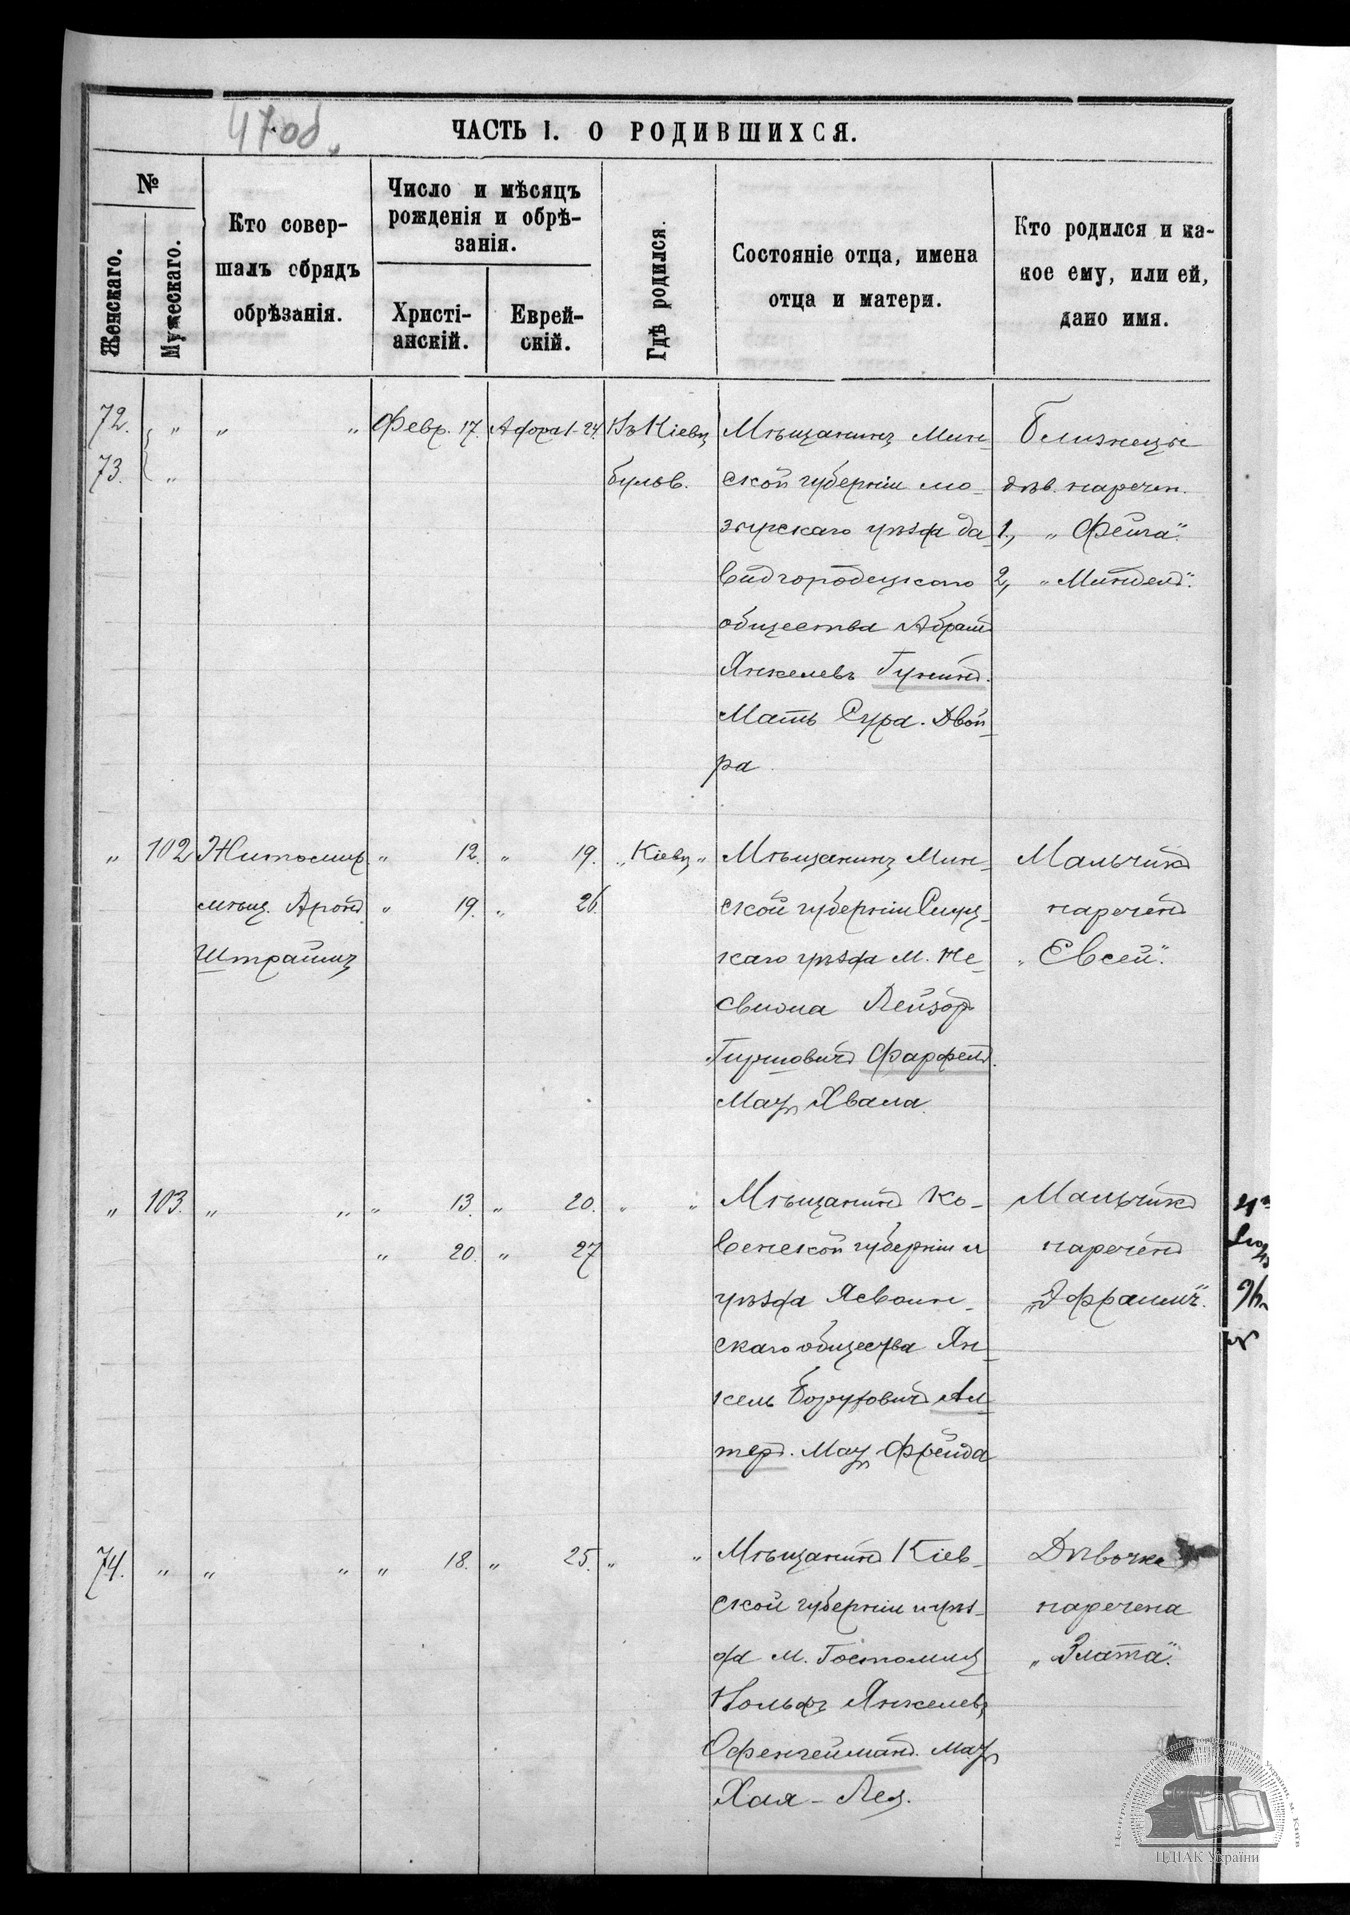 47об.
ЧАСТЬ I. О РОДИВШИХСЯ.
№
Женскаго.
Мужескаго.
Кто совер-
шалъ обрядъ
обрѣзанія.
Число и мѣсяцъ
рожденія и обрѣ-
занія.
Христі-
анскій.
Еврей-
скій.
Гдѣ родился.
Состояніе отца, имена
отца и матери.
Кто родился и ка-
кое ему, или ей,
дано имя.
72. " " " Февр. 17. 24. Въ Кіевѣ
73. " бульв.
Мѣщанинъ Мин-
ской губерніи мо-
зырскаго уѣзда да
видгородецкаго
общества Абрамъ
Янкелевъ Гунинъ.
Мать Сура-Двой-
ра
Близнецы
дѣв. наречен.
1, "Фейга".
2, "Миндель".
" 102 Житомир. " 12. " 19. "Кіевѣ"
мѣщ. Аронъ " 19. " 26.
Штраймъ
Мѣщанинъ Мин-
ской губерніи Слуц-
каго уѣзда м. Не-
свижа Лейзоръ
Гиршовичъ Фарфель.
Мать Хвала.
Мальчикъ
нареченъ
"Евсей".
" 103. " " " 13. " 20. " "
" 20. " 27
Мѣщанинъ Ко-
венской губерніи и
уѣзда Ясвоин-
скаго общества Ян-
кель Боруховичъ Ал-
теръ. Мать Фрейда
Мальчикъ
нареченъ
"Эфраимъ".
74. " " " " 18. " 25. " "
Мѣщанинъ Кіев-
ской губерніи и уѣз-
да м. Гостомля
Вольфъ Янкелевъ
Офенгейманъ. Мать
Хая-Лея.
Дѣвочка
наречена
"Злата".
ЦДІАК України